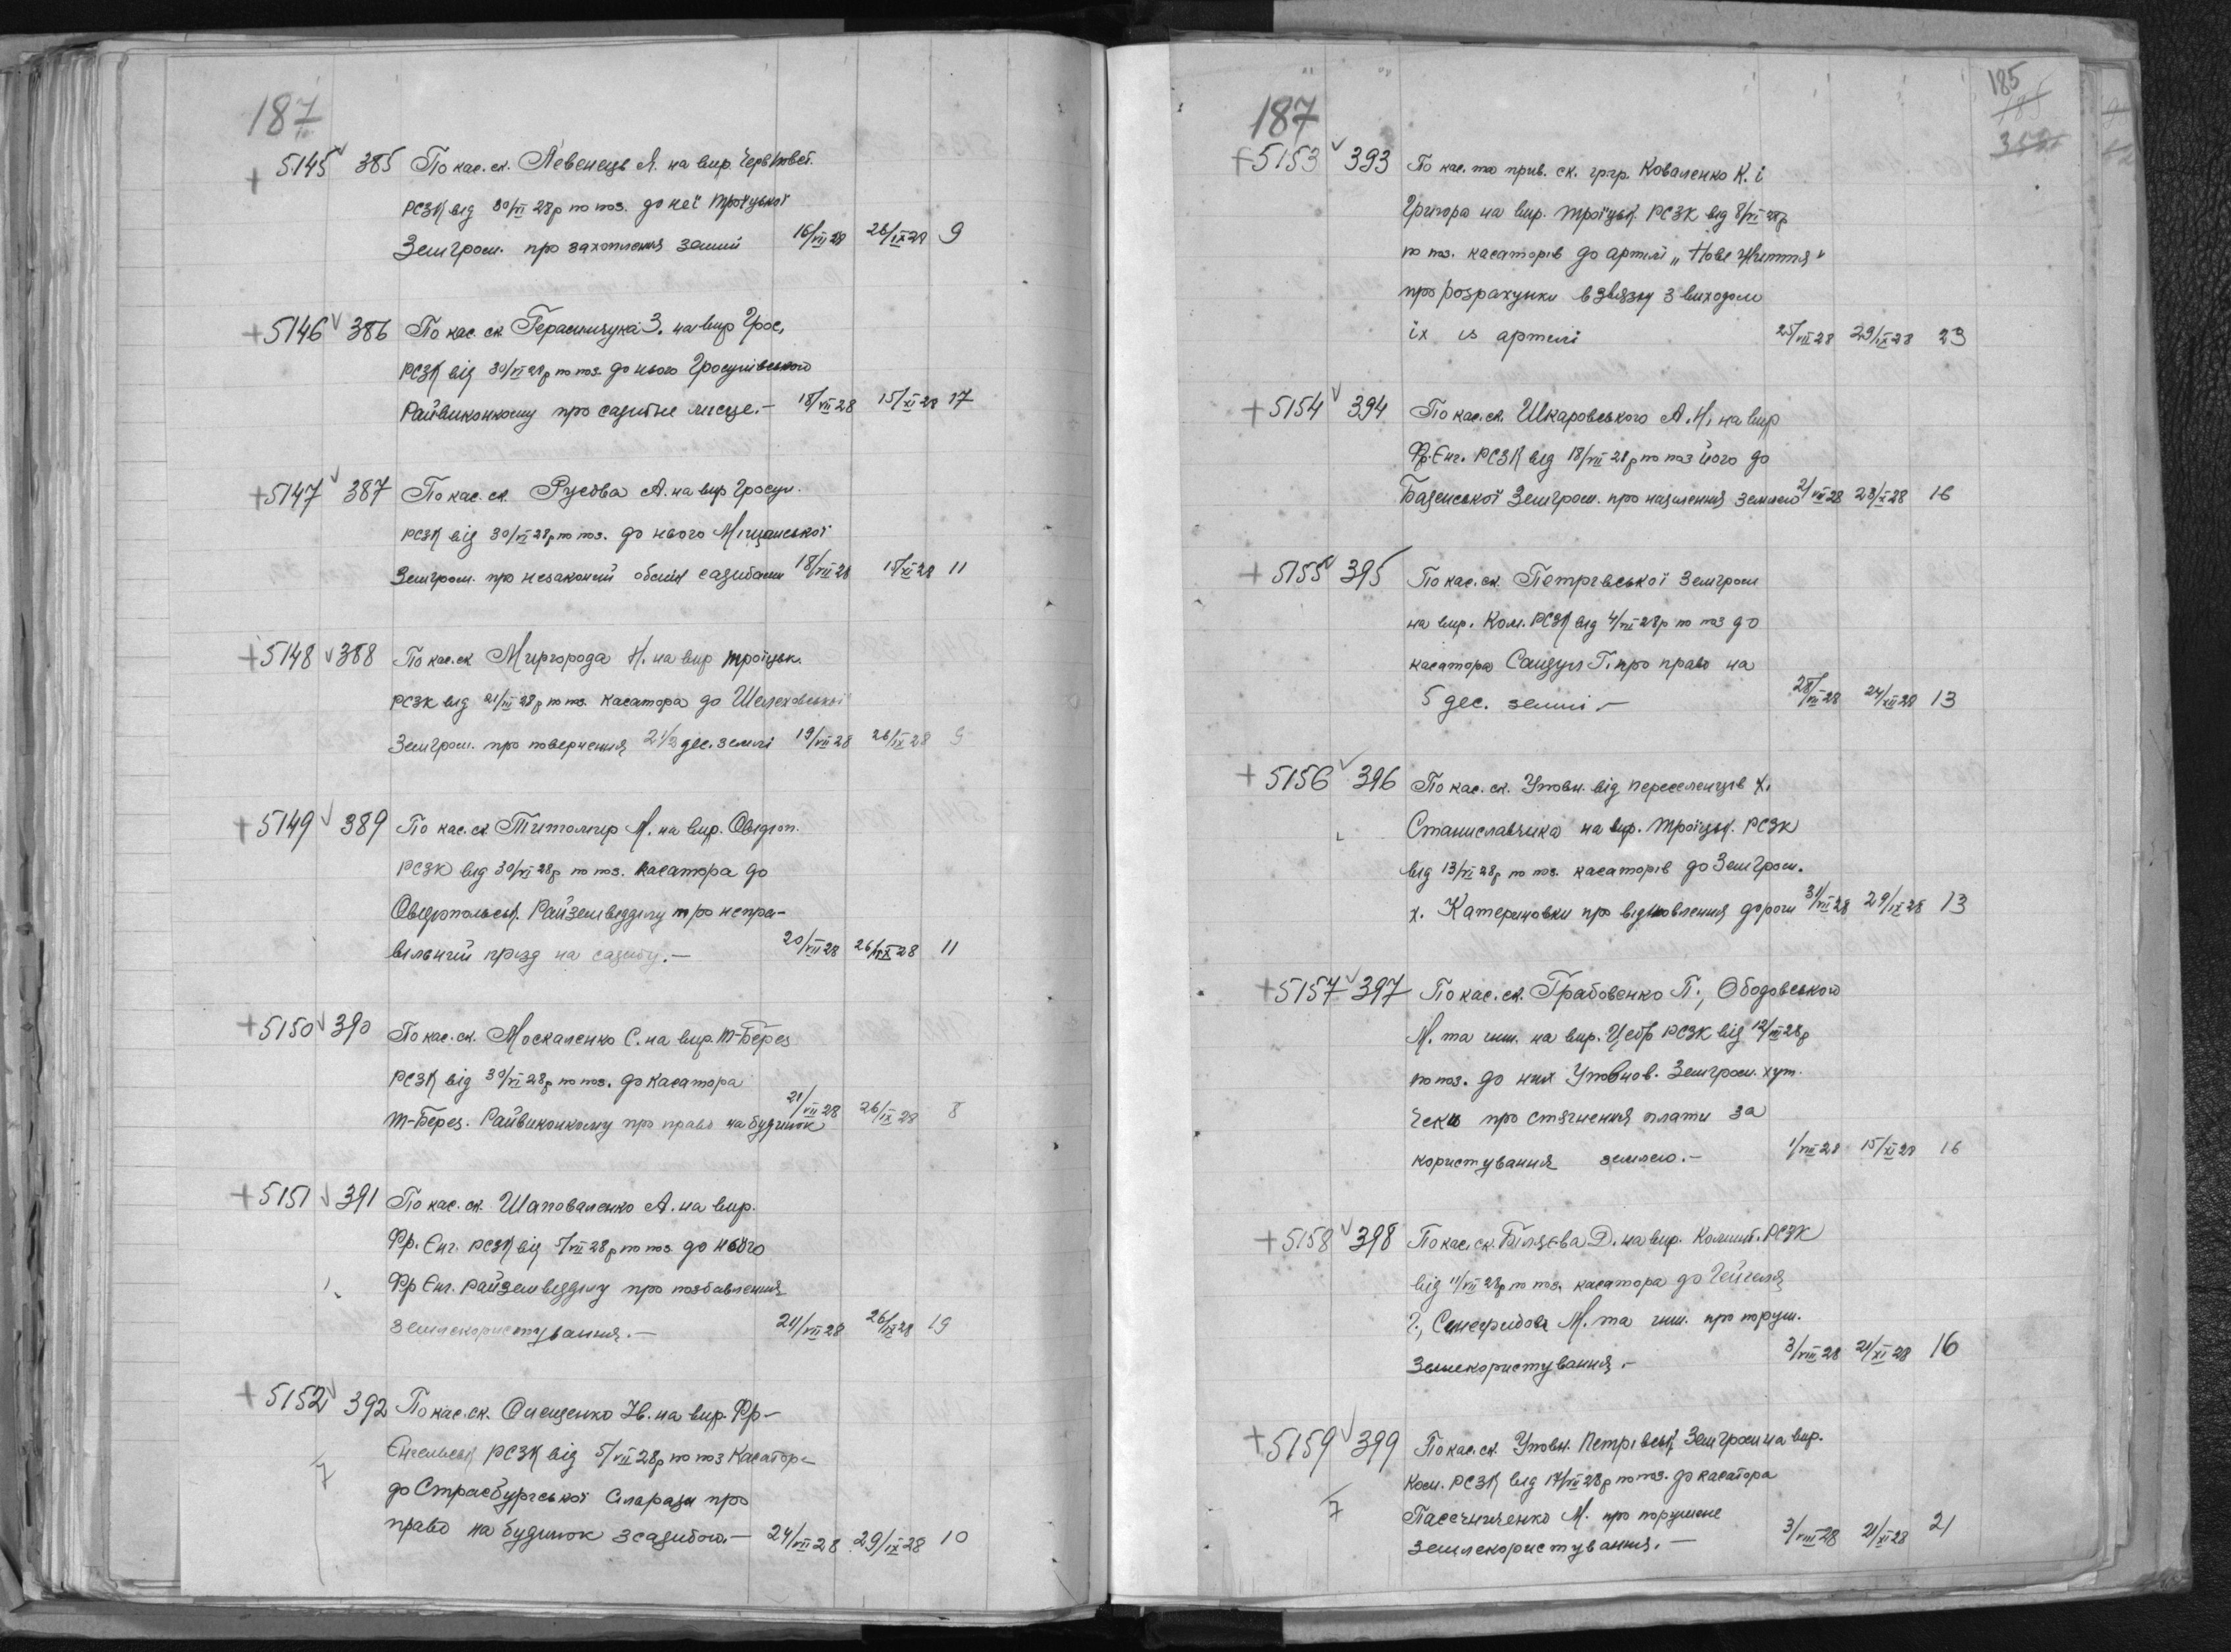 187
+ 5145 385 По кас. ск. Левенець Л. на вир. Черв повст.
РСЗК від 30/VI 28р по поз. до неї Троїцької
Земгром. про захоплення землі 16/VII 28 26/IX 28 9
+ 5146 386 По кас. ск. Герасимчука З. на вир Грос.
РСЗК від 30/VI 28р по поз. до нього Гросулівського
Райвиконкому про садибне місце.- 18/VII 28 15/XI 28 17
+ 5147 387 По кас. ск. Русова А. на вир Гросул.
РСЗК від 30/VI 28р по поз. до нього Міщанської
Земгром. про незаконий обмін садибами 18/VII 28 15/XI 28 11
+ 5148 388 По кас. ск Миргорода Н. на вир Троїцьк.
РСЗК від 21/VI 28р по поз. касатора до Шелеховської
Земгром. про повернення 2 1/3 дес. землі 19/VII 28 26/IX 28 9
+ 5149 389 По кас. ск. Титомир М. на вир. Овідіоп.
РСЗК від 30/VI 28р по поз. касатора до
Овідіопольськ. Райземвідділу про непра-
вільний проїзд на садибу.- 20/VII 28 26/IX 28 11
+ 5150 390 По кас. ск. Москаленко С. на вир. Т-Берез
РСЗК від 30/VI 28р по поз. до касатора
Т-Берез. Райвиконкому про право на будинок 21/VII 28 26/IX 28 8
+ 5151 391 По кас. ск. Шаповаленко А. на вир.
Фр. Енг. РСЗК від 5/VII 28р по поз. до нього
Фр Енг. Райземвідділу про позбавлення
землекористування.- 21/VII 28 26/IX 28 19
+ 5152 392 По кас. ск. Онещенко Ів. на вир. Фр-
Енгельськ РСЗК від 5/VII 28р по поз касатора
до Страсбургської сільради про
право на будинок з садибою.- 24/VII 28 29/IX 28 10
185
187
+ 5153 393 По кас. та прив. ск. гр.гр. Коваленко К. і
Григора на вир. Троїцьк. РСЗК від 8/VI 28р
по поз. касаторів до артілі "Нове Життя"
про розрахунки в звязку з виходом
їх із артілі 25/VII 28 29/IX 28 23
+ 5154 394 По кас. ск. Шкаровського А. Н. на вир
Фр. Енг. РСЗК від 18/VII 28р по поз його до
Баденської Земгром. про наділення землею 21/VII 28 28/X 28 16
+ 5155 395 По кас. ск. Петрівської Земгром
на вир. Ком. РСЗК від 4/VII 28р по поз до
касатора Сандул Г. про право на
5 дес. землі.- 28/VII 28 24/XII 28 13
+ 5156 396 По кас. ск. Уповн. від переселенців х.
Станиславчика на вир. Троїцьк. РСЗК
від 13/VI 28р по поз. касаторів до Земгром.
х. Катериновки про відновлення дороги 31/VII 28 29/IX 28 13
+ 5157 397 По кас. ск. Грабовенко П., Ободовського
М. та инш. на вир. Цебр РСЗК від 12/VII 28р
по поз. до них Уповнов. Земгром. хут.
Чеки про стягнення плати за
користування землею.- 1/VIII 28 15/XI 28 16
+ 5158 398 По кас. ск. Біляєва Д. на вир. Комінт. РСЗК
від 11/VII 28р по поз. касатора до Гейгеля
Г., М. та инш. про поруш.
землекористування.- 3/VIII 28 21/XI 28 16
+ 5159 399 По кас. ск. Уповн. Петрівськ Земгром на вир.
Ком. РСЗК від 17/VII 28р по поз. до касатора
Пасечниченко М. про порушене
землекористування.- 3/VIII 28 21/XI 28 21